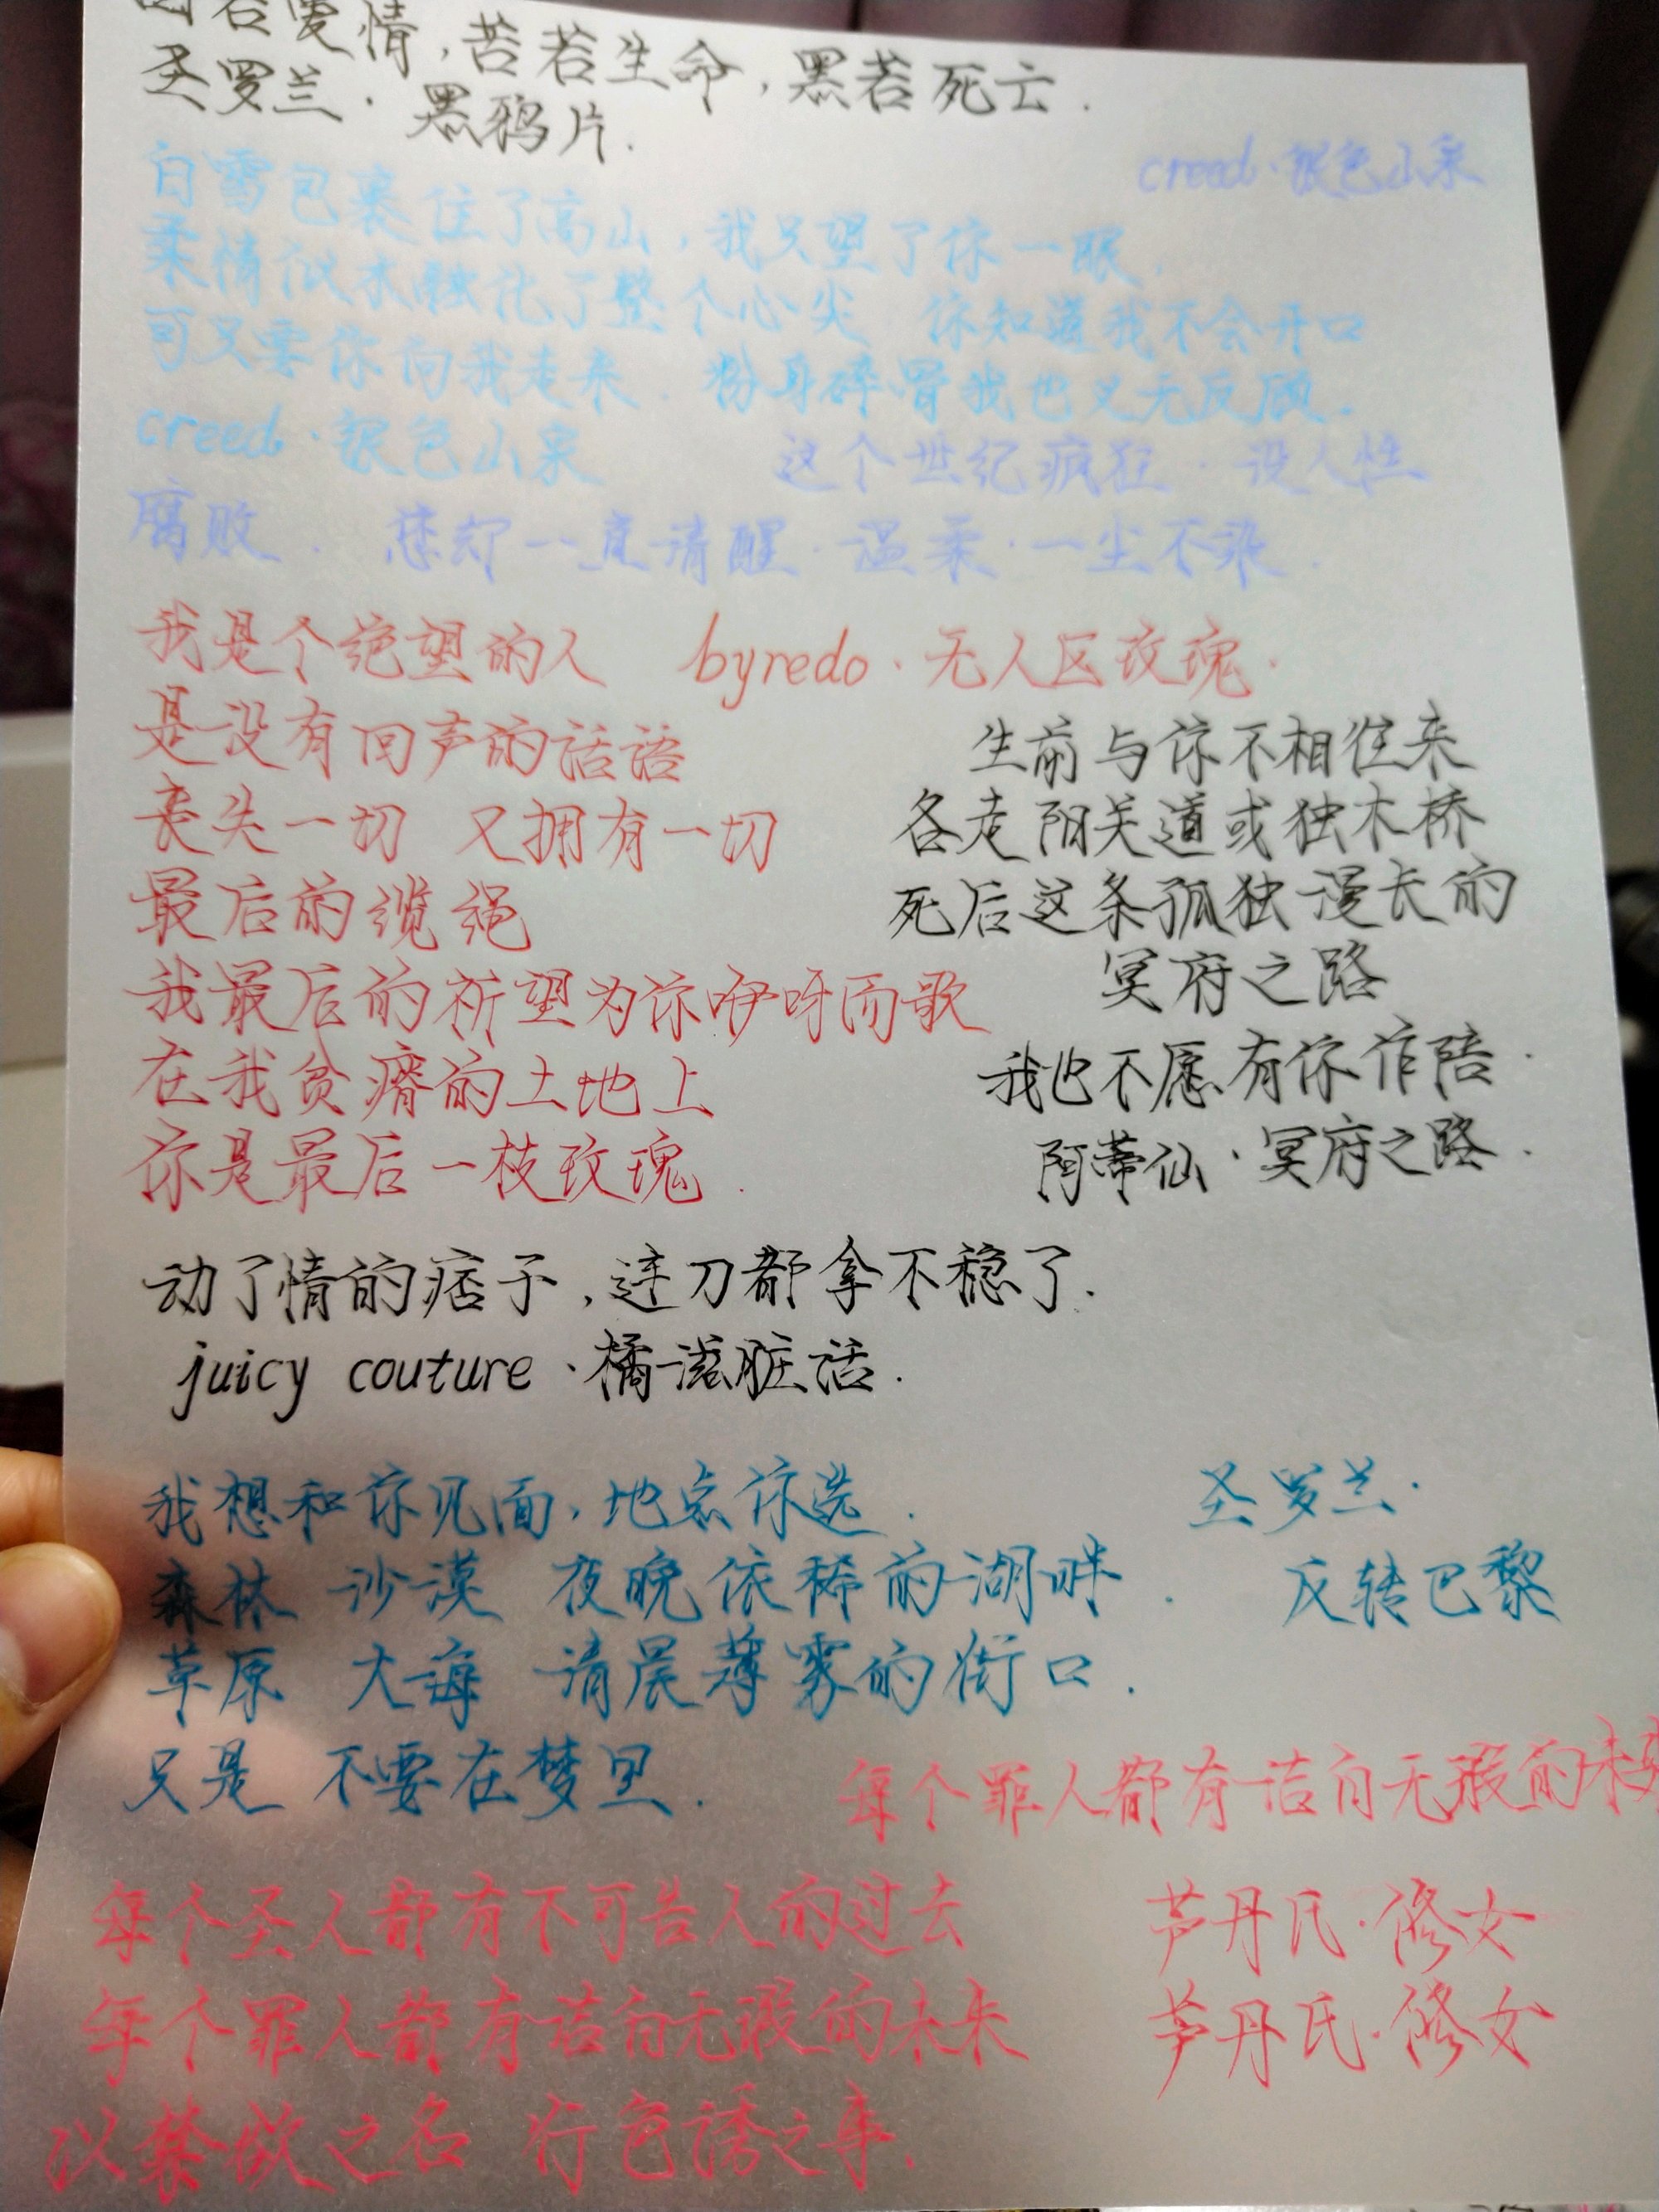 若爱情，苦若生命，黑若死亡．
圣罗兰·黑鸦片．
creed·银色山泉
白雪包裹住了高山，我只望了你一眼．
柔情似水融化了整个心尖 你知道我不会开口
可只要你向我走来．粉身碎骨我也义无反顾．
creed·银色山泉
这个世纪疯狂·没人性
腐败．您却一直清醒·温柔·一尘不染．
我是个绝望的人 byredo·无人区玫瑰·
是没有回声的话语
丧失一切 又拥有一切
最后的缆绳
我最后的祈望为你咿呀而歌
在我贫瘠的土地上
你是最后一枝玫瑰．
生前与你不相往来
各走阳关道或独木桥
死后这条孤独漫长的
冥府之路
我也不愿有你作陪·
阿蒂仙·冥府之路．
动了情的痞子，连刀都拿不稳了．
juicy couture·橘滋脏话．
我想和你见面，地点你选．
森林 沙漠 夜晚依稀的湖畔．
草原 大海 清晨薄雾的街口．
只是 不要在梦里．
圣罗兰·
反转巴黎
每个罪人都有洁白无瑕的未来
每个圣人都有不可告人的过去
每个罪人都有洁白无瑕的未来
以禁欲之名 行色诱之事．
芦丹氏·修女
芦丹氏·修女